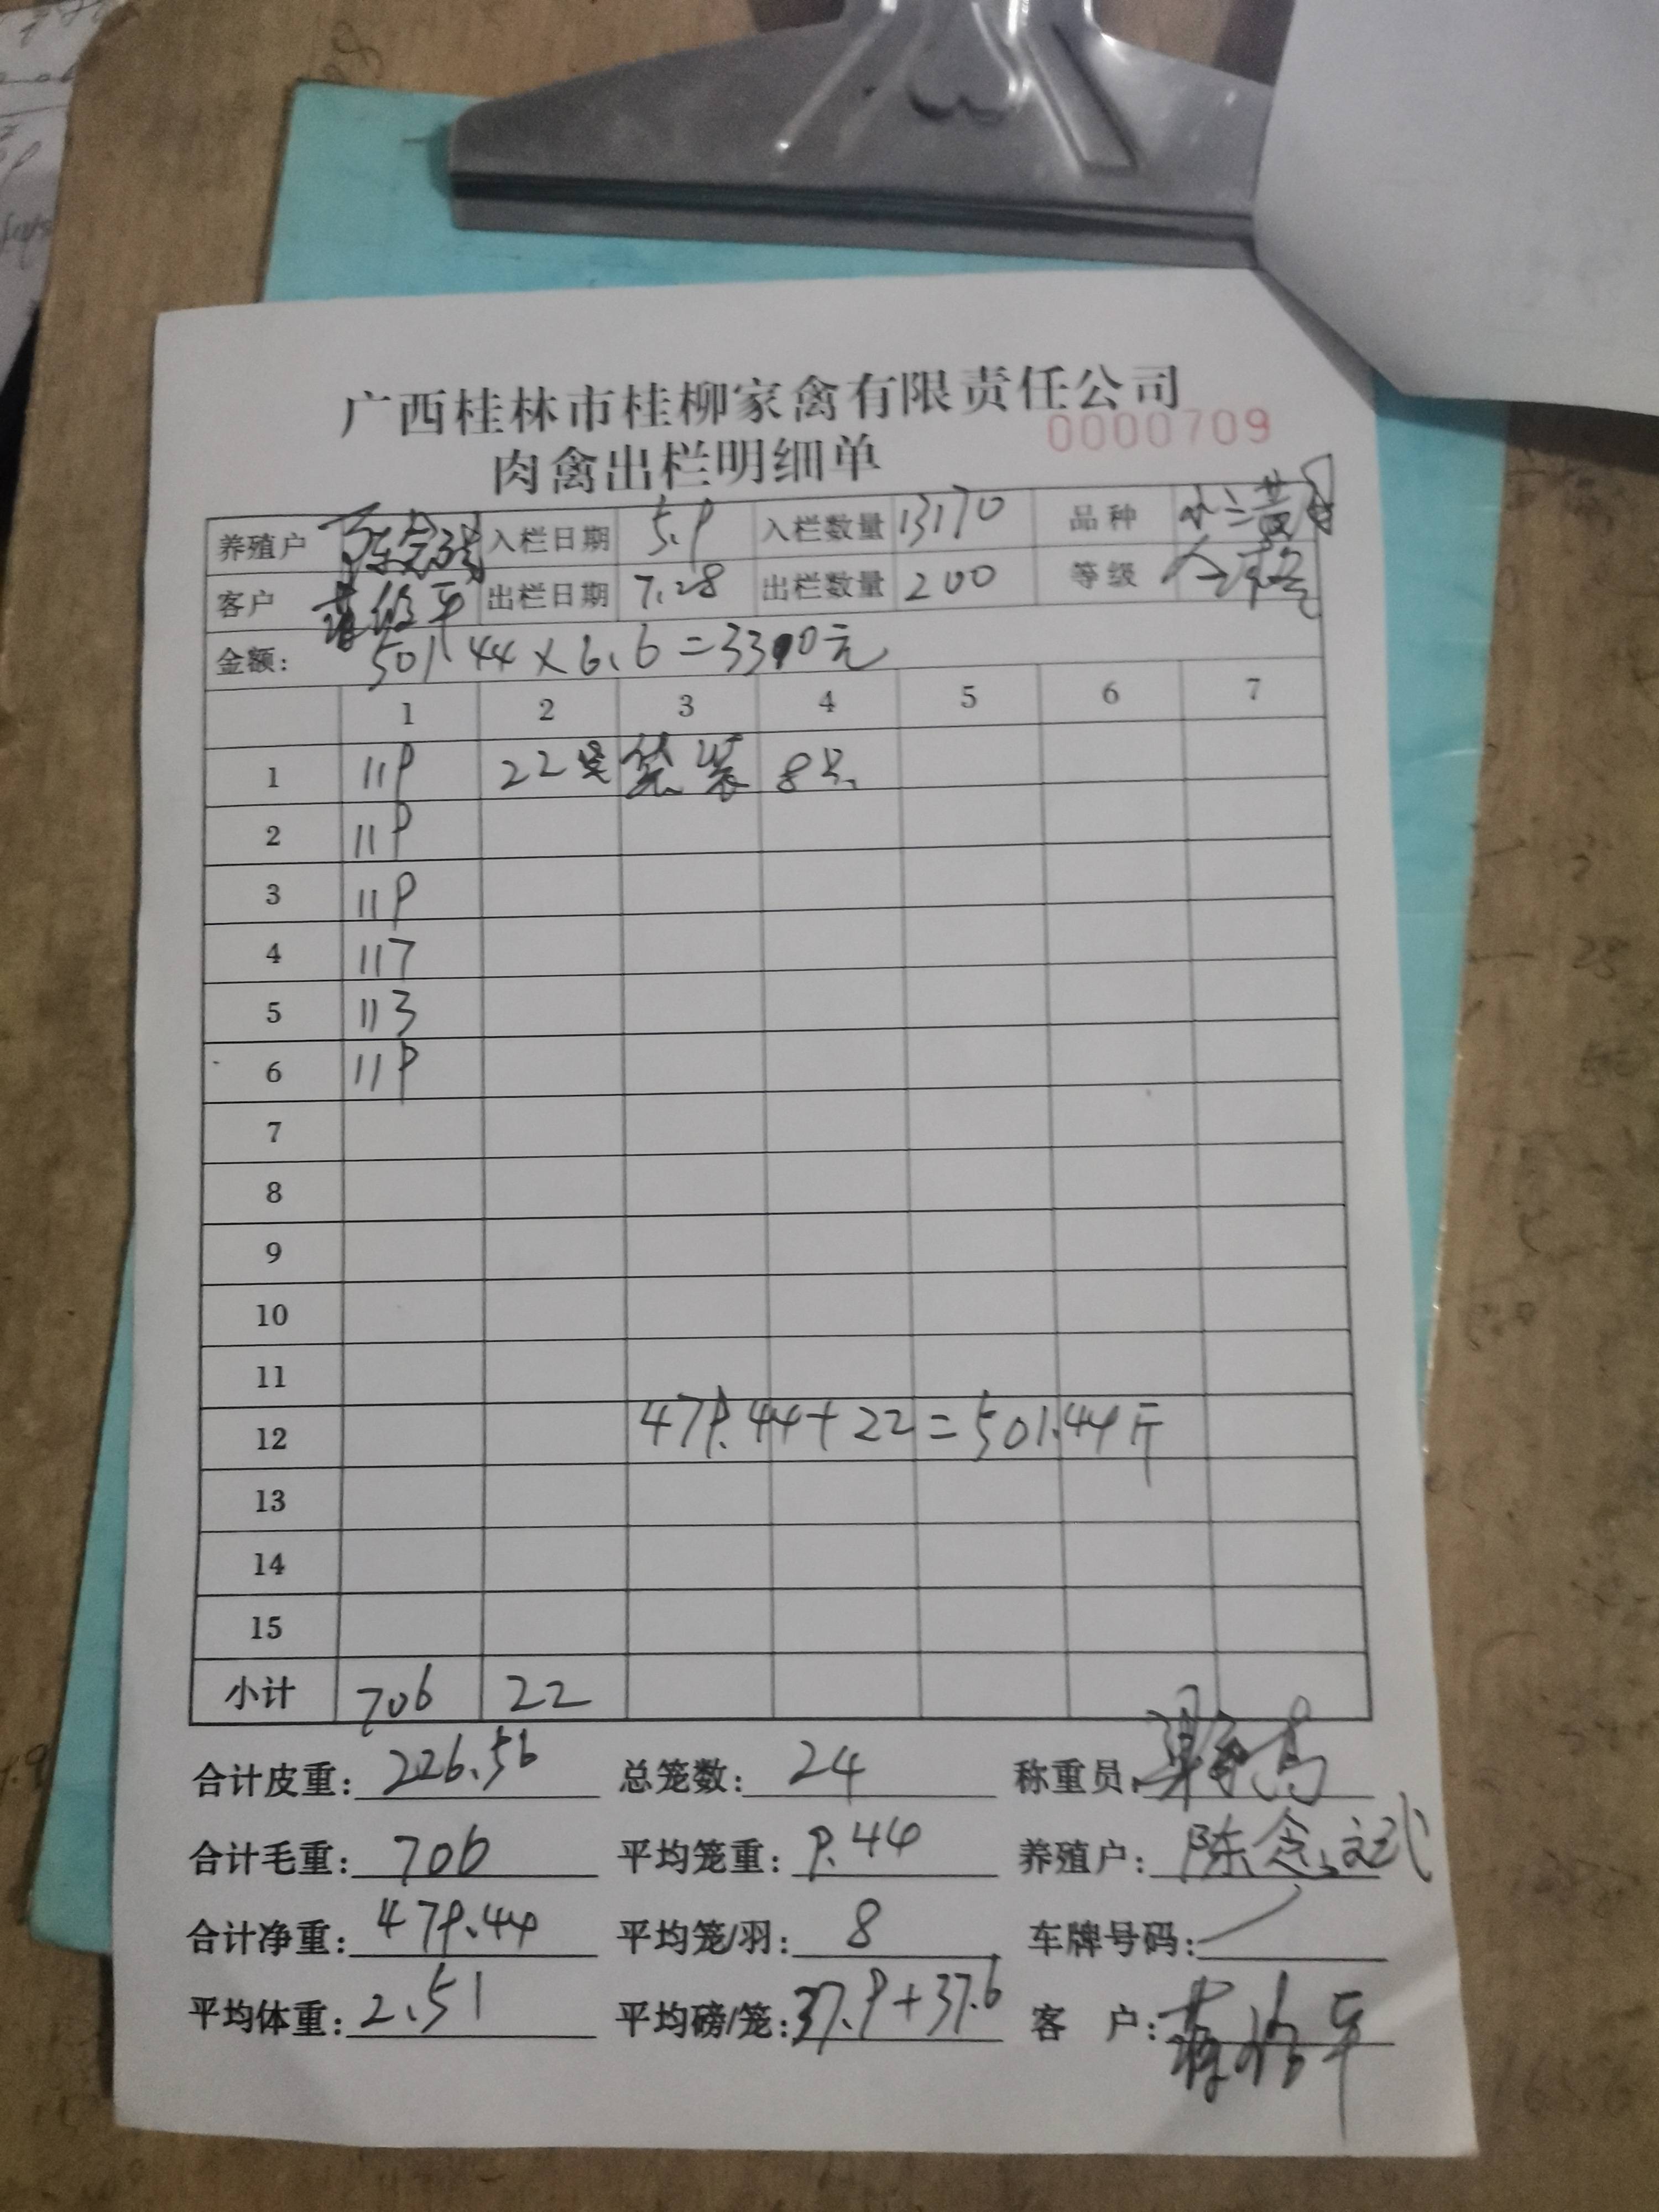 广西桂林市桂柳家禽有限责任公司
0000709
肉禽出栏明细单
养殖户 陈念斌 入栏日期 5.9 入栏数量 13170 品种 小三黄
客户 平 出栏日期 7.28 出栏数量 200 等级 合格
金额: 501.44×6.6=3310元
1 2 3 4 5 6 7
1 119 22 袋装 8只
2 119
3 119
4 117
5 113
6 119
7
8
9
10
11
12 479.44+22=501.44斤
13
14
15
小计 706 22
合计皮重: 226.56 总笼数: 24 称重员:
合计毛重: 706 平均笼重: 9.44 养殖户: 陈念斌
合计净重: 479.44 平均笼/羽: 8 车牌号码:
平均体重: 2.51 平均磅/笼: 37.9+37.6 客 户: 平